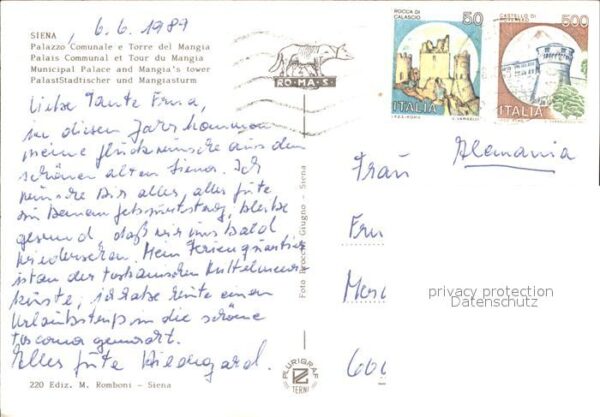 SIENA, 6.6.1989
Palazzo Comunale e Torre del Mangia
Palais Communal et Tour du Mangia
Municipal Palace and Mangia's tower
PalastStadtischer und Mangiasturm
Liebe Tante Erna,
in diesem Jahr kommen
meine Glückwünsche aus dem
schönen alten Siena. Ich
wünsche Dir alles, alles Gute
zu Deinem Geburtstag, bleibe
gesund, daß wir uns bald
wiedersehen. Mein Ferienquartier
ist an der toskanischen Mittelmeer
küste, ich habe heute einen
Urlaubstrip in die schöne
Toscana gemacht.
Alles Gute Hildegard.
220 Ediz. M. Romboni - Siena
Giugno - Siena
PLURIGRAF
TERNI
RO-MA-S.
ROCCA DI
CALASCIO
50
ITALIA
CASTELLO DI
500
ITALIA
Alemania
Frau
privacy protection
Datenschutz